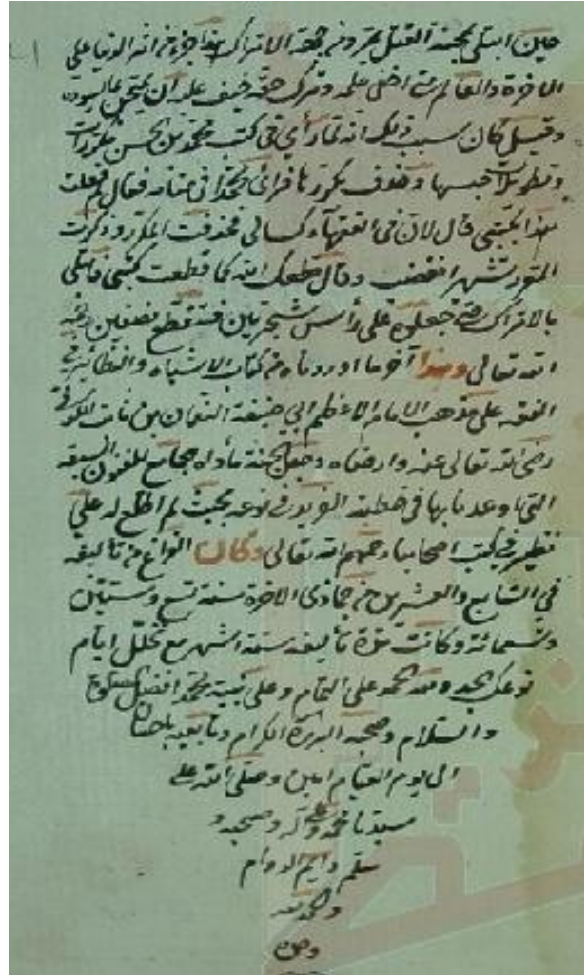 حين ابتلى بمحنة القتل بمرو من جهة الاتراك هذا جزاء من آثر الدنيا على
الاخرة والعالم متى اخفى علمه وترك حقه خيف عليه ان يمتحن بما يسوءه
وقيل كان سبب ذلك انه لما رأى في كتب محمد بن الحسن مكررات
وتطويلات حبسها وحذف مكررها فرأى محمدا في منامه فقال لم فعلت
هذا بكتبي قال لان في الفقهاء كسالى فحذفت المكرر وذكرت
المقرر تسهيرا فغضب وقال قطعك الله كما قطعت كتبي فابتلى
بالاتراك حتى جعلوه على رأس شجرتين فتقطع نصفين رحمه
الله تعالى وهذا آخر ما اوردناه من كتاب الاشباه والنظائر في
الفقه على مذهب الامام الاعظم ابي حنيفة النعمان بن ثابت الكوفي
رضى الله تعالى عنه وارضاه وجعل الجنة مأواه جامع للفنون السبعة
التي وعدنا بها في خطبته الفريد في نوعه بحيث لم اطلع له على
نظير في كتب اصحابنا رحمهم الله تعالى وكان الفراغ من تأليفه
في السابع والعشرين من جمادى الاخرة سنة تسع وستين
وتسعمائة وكانت مدة تأليفه ستة اشهر مع تخلل ايام
توعك الجسد ولله الحمد على التمام وعلى نبيه محمد افضل الصلوة
والسلام وصحبه البررة الكرام وتابعيه باحسان
الى يوم القيام امين وصلى الله على
سيدنا محمد وعلى آله وصحبه و
سلم دايم الدوام
والحمد لله
وحده